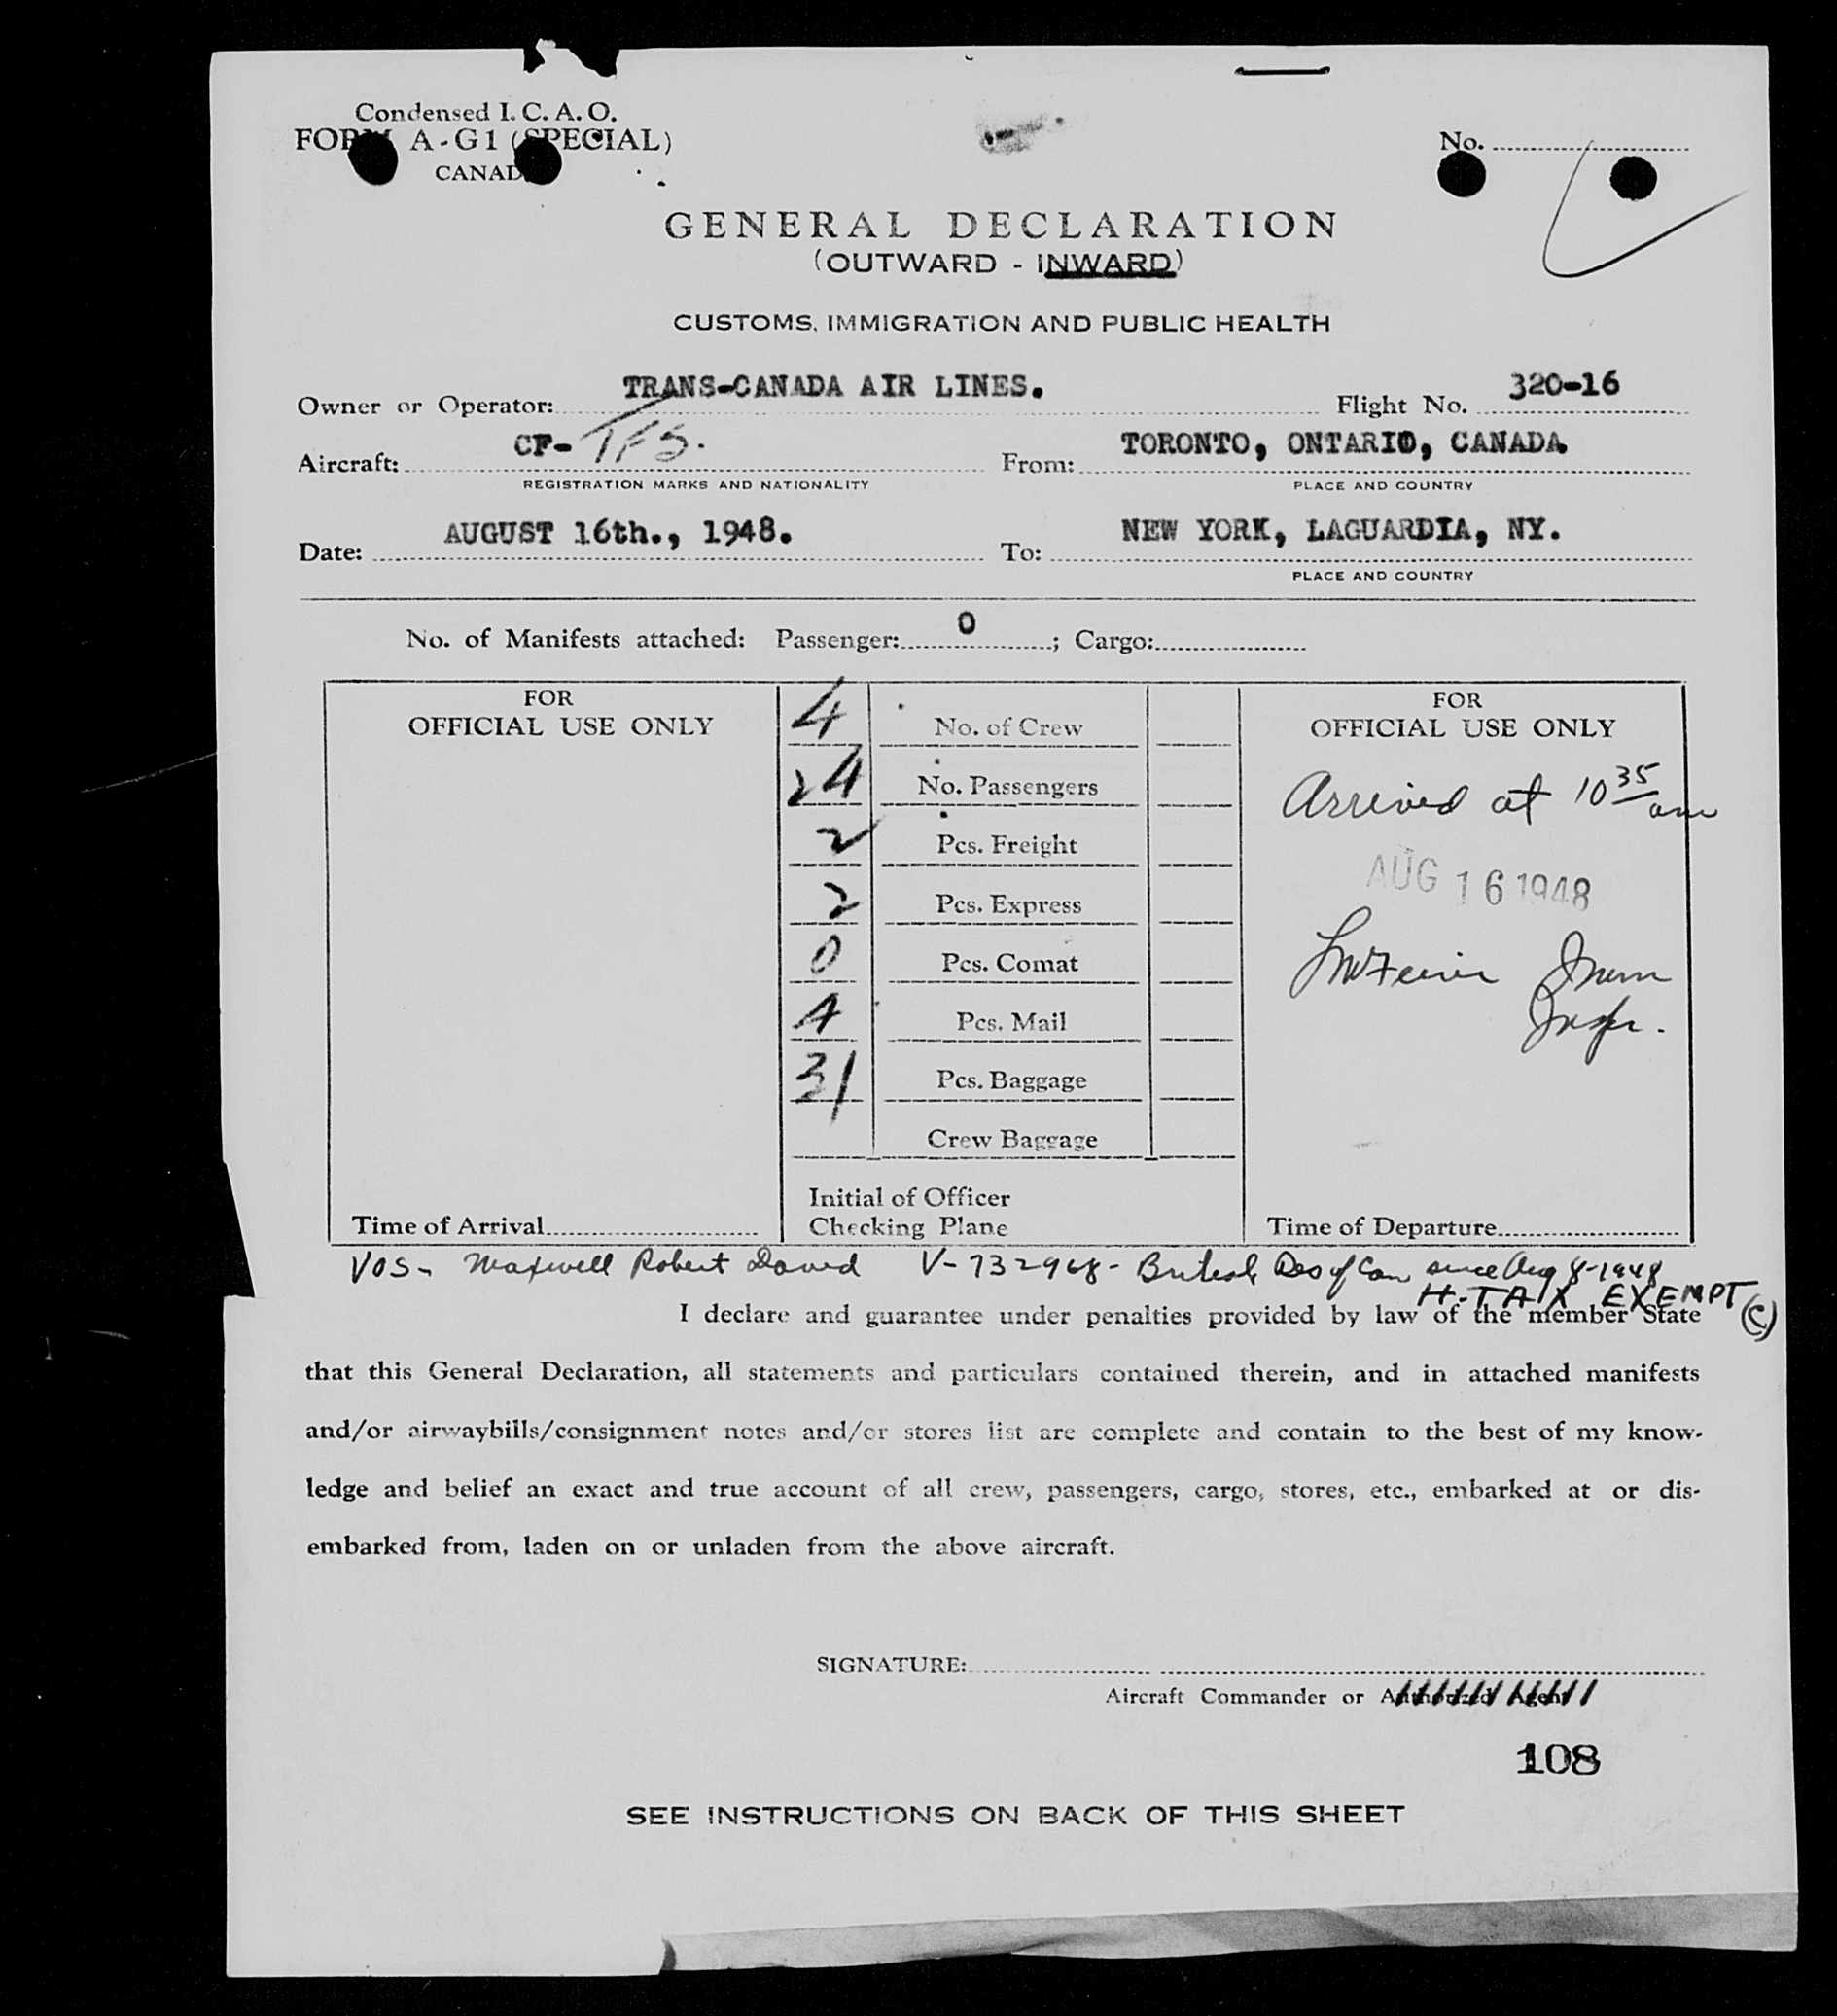 Condensed I. C. A. O.
FORM A-G1 (SPECIAL)
CANADA
No.
GENERAL DECLARATION
(OUTWARD - INWARD)
CUSTOMS, IMMIGRATION AND PUBLIC HEALTH
Owner or Operator: TRANS-CANADA AIR LINES. Flight No. 320-16
Aircraft: CF-TFS. From: TORONTO, ONTARIO, CANADA
REGISTRATION MARKS AND NATIONALITY PLACE AND COUNTRY
Date: AUGUST 16th., 1948. To: NEW YORK, LAGUARDIA, NY.
PLACE AND COUNTRY
No. of Manifests attached: Passenger: 0; Cargo:
FOR
OFFICIAL USE ONLY
4 No. of Crew
24 No. Passengers
2 Pcs. Freight
2 Pcs. Express
0 Pcs. Comat
4 Pcs. Mail
31 Pcs. Baggage
Crew Baggage
Initial of Officer
Checking Plane
Time of Arrival
FOR
OFFICIAL USE ONLY
Arrived at 10 35 am
AUG 16 1948
Imm
Inspr.
Time of Departure
VOS - Maxwell Robert David V-732968 - British Res of Can since Aug 8-1948
H-TAX EXEMPT (C)
I declare and guarantee under penalties provided by law of the member State
that this General Declaration, all statements and particulars contained therein, and in attached manifests
and/or airwaybills/consignment notes and/or stores list are complete and contain to the best of my know-
ledge and belief an exact and true account of all crew, passengers, cargo, stores, etc., embarked at or dis-
embarked from, laden on or unladen from the above aircraft.
SIGNATURE:
Aircraft Commander or Authorized Agent
108
SEE INSTRUCTIONS ON BACK OF THIS SHEET